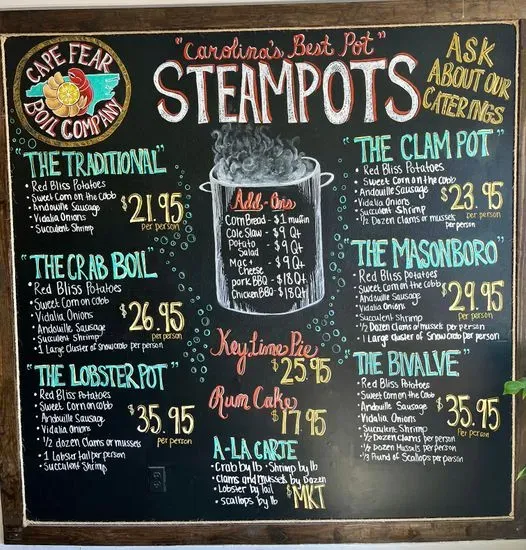 CAPE FEAR
BOIL COMPANY
"Carolina's Best Pot"
STEAMPOTS
ASK
ABOUT OUR
CATERINGS
"THE TRADITIONAL"
• Red Bliss Potatoes
• Sweet Corn on the Cobb
• Andouille Sausage
• Vidalia Onions
• Succulent Shrimp
$21.95
per person
"THE CRAB BOIL"
• Red Bliss Potatoes
• Sweet Corn on Cobb
• Vidalia Onions
• Andouille Sausage
• Succulent Shrimp
• 1 Large Cluster of Snow crab per person
$26.95
per person
"THE LOBSTER POT"
• Red Bliss Potatoes
• Sweet Corn on Cobb
• Andouille Sausage
• Vidalia Onions
• 1/2 dozen Clams or mussels
• 1 Lobster tail per person
• Succulent Shrimp
$35.95
Per person
Add-Ons
Corn Bread - $1 muffin
Cole Slaw - $9 Qt
Potato
Salad - $9 Qt
Mac +
Cheese - $9 Qt
pork BBQ - $18 Qt
Chicken BBQ - $18 Qt
Key Lime Pie
$25.95
Rum Cake
$17.95
A-LA CARTE
• Crab by lb • Shrimp by lb
• Clams and mussels by Dozen
• Lobster by Tail
• Scallops by lb
$MKT
"THE CLAM POT"
• Red Bliss Potatoes
• Sweet Corn on the Cobb
• Andouille Sausage
• Vidalia Onions
• Succulent Shrimp
• 1/2 Dozen Clams or mussels per person
$23.95
per person
"THE MASONBORO"
• Red Bliss Potatoes
• Sweet Corn on Cobb
• Andouille Sausage
• Vidalia Onions
• Succulent Shrimp
• 1/2 Dozen Clams or mussels per person
• 1 Large Cluster of Snow Crab per person
$29.95
per person
"THE BIVALVE"
• Red Bliss Potatoes
• Sweet Corn on the Cobb
• Andouille Sausage
• Vidalia Onions
• Succulent Shrimp
• 1/2 Dozen Clams per person
• 1/2 Dozen Mussels per person
• 1/3 Pound of Scallops per person
$35.95
Per person